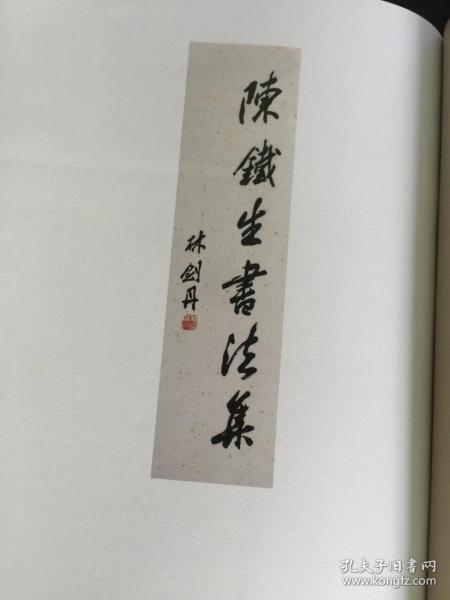 陳鐵生書法集
林劍丹
孔夫子旧书网
www.kongfz.com